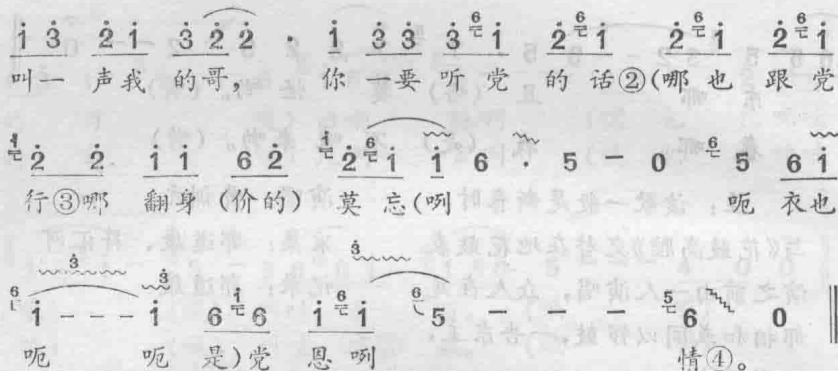 1̇ 3̇ 2̇ 1̇ 3̇ 2̇ 2̇ · 1̇ 3̇ 3̇ 3̇ 6 1̇ 2̇ 6 1̇ 2̇ 6 1̇ 2̇ 6 1̇
叫一 声我 的哥, 你一要听党的话②(哪也 跟党
1̇ 2̇ 2̇ 1̇ 1̇ 6 2̇ 1̇ 2̇ 6 1̇ 1̇ 6 · 5 – 0 6 5 6 1̇
行③哪 翻身(价的)莫忘(咧 呃 衣也
6 1̇ – – – 1̇ 6 1̇ 6 1̇ 6 1̇ 6 5 – – – 5 6 0
呃 呃 是)党 恩咧 情④。